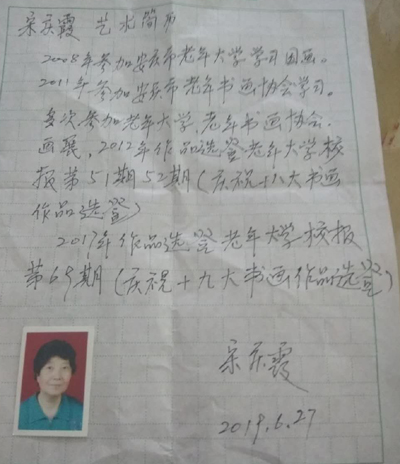 宋庆霞 艺术简历
2008年参加安庆市老年大学学习国画。
2011年参加安庆市老年书画协会学习。
多次参加老年大学、老年书画协会
画展，2012年作品选登老年大学校
报第51期52期（庆祝十八大书画
作品选登）
2017年作品选登老年大学校报
第69期（庆祝十九大书画作品选登）
宋庆霞
2019.6.27